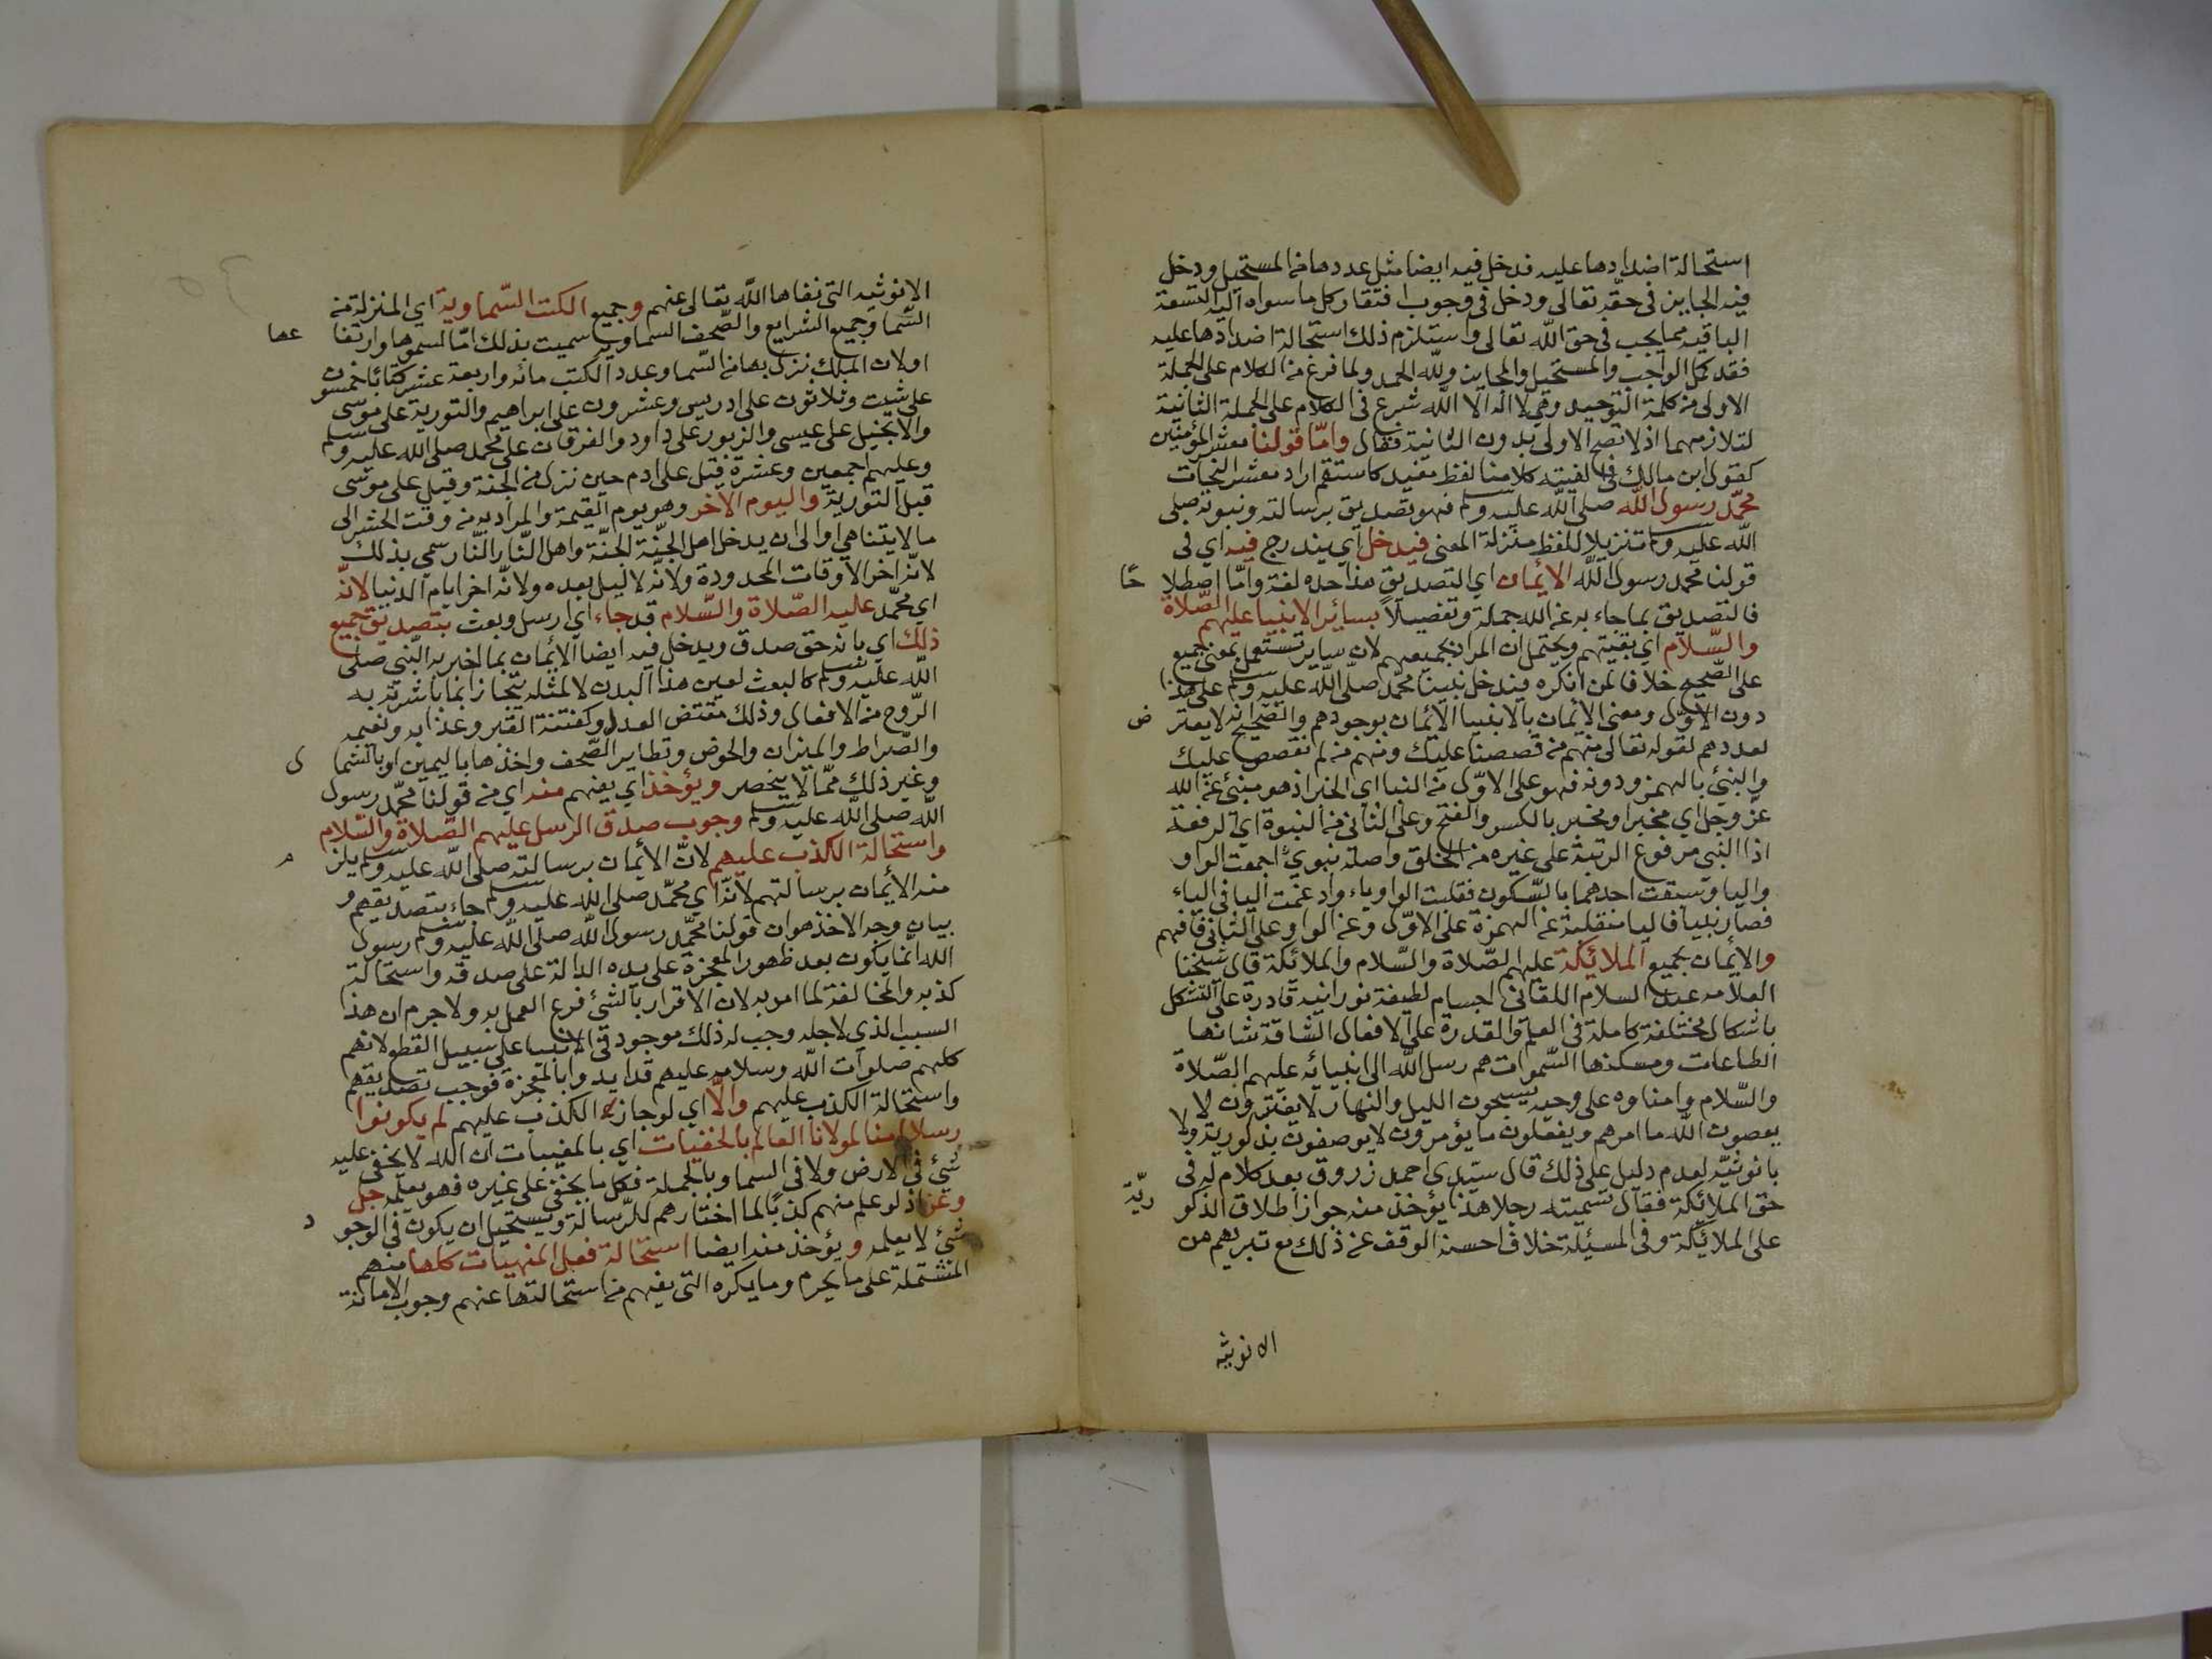 استحالة اضدادها عليه فدخل فيه ايضا مثل عددها من المستحيل ودخل
فيه الجايز في حقه تعالى ودخل في وجوب افتقار كل ما سواه اليه التسعة
الباقية مما يجب في حق الله تعالى واستلزم ذلك استحالة اضدادها عليه
فقد كمل الواجب والمستحيل والجايز ولله الحمد ولما فرغ من الكلام على الجملة
الاولى من كلمة التوحيد وهي لا اله الا الله شرع في الكلام على الجملة الثانية
لتلازمهما اذ لا تصح الاولى بدون الثانية فقال واما قولنا معشر المؤمنين
كقول ابن مالك في الفيته كلامنا لفظ مفيد كاستقم اراد معشر النحات
محمد رسول الله صلى الله عليه وسلم فهو تصديق برسالته ونبوته صلى
الله عليه وسلم تنزيلا للفظ منزلة المعنى فيدخل اي يندرج فيه اي في
قولنا محمد رسول الله الايمان اي التصديق هذا حده لغة واما اصطلا حًا
فالتصديق بما جاء به عن الله جملة وتفصيلا بسائر الانبيا عليهم الصلاة
والسلام اي بقيتهم ويحتمل ان المراد بجميعهم لان ساير تستعمل بمعنى جميع
على الصحيح خلافا لمن انكره فيدخل نبينا محمد صلى الله عليه وسلم على هذا
دون الاول ومعنى الايمان بالانبيا الايمان بوجودهم والصحيح انه لا يعتر ض
لعددهم لقوله تعالى منهم من قصصنا عليك ومنهم من لم نقصص عليك
والنبئ بالهمز ودونه فهو على الاول من النبا اي الخبر اذ هو منبئ عن الله
عز وجل اي مخبرا ومخبر بالكسر والفتح وعلى الثاني من النبوة اي الرفعة
اذا النبي مرفوع الرتبة على غيره من الخلق واصله نبوي اجمعت الواو
واليا وسبقت احدهما بالسكون فقلبت الواو ياء وادغمت اليا في الياء
فصار نبيا فاليا منقلبة عن الهمزة على الاول وعن الواو على الثاني فافهم
والايمان بجميع الملائكة عليهم الصلاة والسلام والملائكة قال شيخنا
العلامه عبد السلام اللقاني اجسام لطيفة نورانيه قادرة على التشكل
باشكال مختلفة كاملة في العلم والقدرة على الافعال الشاقة شانها
الطاعات ومسكنها السموات هم رسل الله الى انبيائه عليهم الصلاة
والسلام وامناوه على وحيه يسبحون الليل والنهار لا يفترون لا
يعصون الله ما امرهم ويفعلون ما يؤمرون لا يوصفون بذكورية ولا
بانوثية لعدم دليل على ذلك قال سيدي احمد زروق بعد كلام له في
حق الملائكة فقال تسميته رجلا هذا يؤخذ منه جواز اطلاق الذكو رية
على الملائكة وفي المسئلة خلاف احسنه الوقف عن ذلك مع تبريهم من
الانوثيه
الانوثيه التي نفاها الله تعالى عنهم وجميع الكتب السماوية اي المنزلة من
السما وجميع الشرايع والصحف السماوية سميت بذلك اما لسموها وارتفا عها
او لان الملك نزل بها من السما وعدد الكتب مائه واربعة عشر كتابا خمسون
على شيت وثلاثون على ادريس وعشرون على ابراهيم والتورية على موسى
والانجيل على عيسى والزبور على داود والفرقان على محمد صلى الله عليه وسلم
وعليهم اجمعين وعشرة قيل على ادم حين نزل من الجنة وقيل على موسى
قبل التورية واليوم الاخر وهو يوم القيمة والمراد به من وقت الحشر الى
ما لا يتناهي او الى ان يدخل اهل الجنة الجنة واهل النار النار سمي بذلك
لانه اخر الاوقات المحدودة ولانه لا ليل بعده ولانه اخر ايام الدنيا لانه
اي محمد عليه الصلاة والسلام قد جاء اي ارسل وبعث بتصديق جميع
ذلك اي بانه حق صدق ويدخل فيه ايضا الايمان بما اخبر به النبي صلى
الله عليه وسلم كالبعث لعين هذا البدن لا لمثله بتجازانما باشرته به
الروح من الافعال وذلك مقتض العدل وكفتنة القبر وعذابه ونعيمه
والصراط والميزان والحوض وتطاير الصحف واخذها باليمين او بالشما ل
وغير ذلك مما لا ينحصر ويؤخذ اي يفهم منه اي من قولنا محمد رسول
الله صلى الله عليه وسلم وجوب صدق الرسل عليهم الصلاة والسلام
واستحالة الكذب عليهم لان الايمان برسالته صلى الله عليه وسلم يلز م
منه الايمان برسالتهم لانه اي محمد صلى الله عليه وسلم جاء بتصديقهم و
بيان وجه الاخذ هو ان قولنا محمد رسول الله صلى الله عليه وسلم رسول
الله انما يكون بعد ظهور المعجزة على يده الدالة على صدقه واستحالة
كذبه والمخالفة لما امر به لان الاقرار بالشئ فرع العمل به ولا جرم ان هذا
السبب الذي لاجله وجب له ذلك موجود في الانبيا على سبيل القطع لانهم
كلهم صلوات الله وسلامه عليهم قد ايدوا بالمعجزة فوجب تصديقهم
واستحالة الكذب عليهم والا اي لو جاز الكذب عليهم لم يكونوا
رسلا امنا لمولانا العالم بالخفيات اي بالمغيبات ان الله لا يخفى عليه
شئ في الارض ولا في السما وبالجملة فكل ما يخفى على غيره فهو يعلمه جل
وعز اذ لو علم منهم كذبا لما اختارهم للرسالة ويستحيل ان يكون في الوجو د
شئ لا يعلمه ويؤخذ منه ايضا استحالة فعل المنهيات كلها منهم
المشتملة على ما يحرم وما يكره التي يفهم من استحالتها عنهم وجوب الامانة